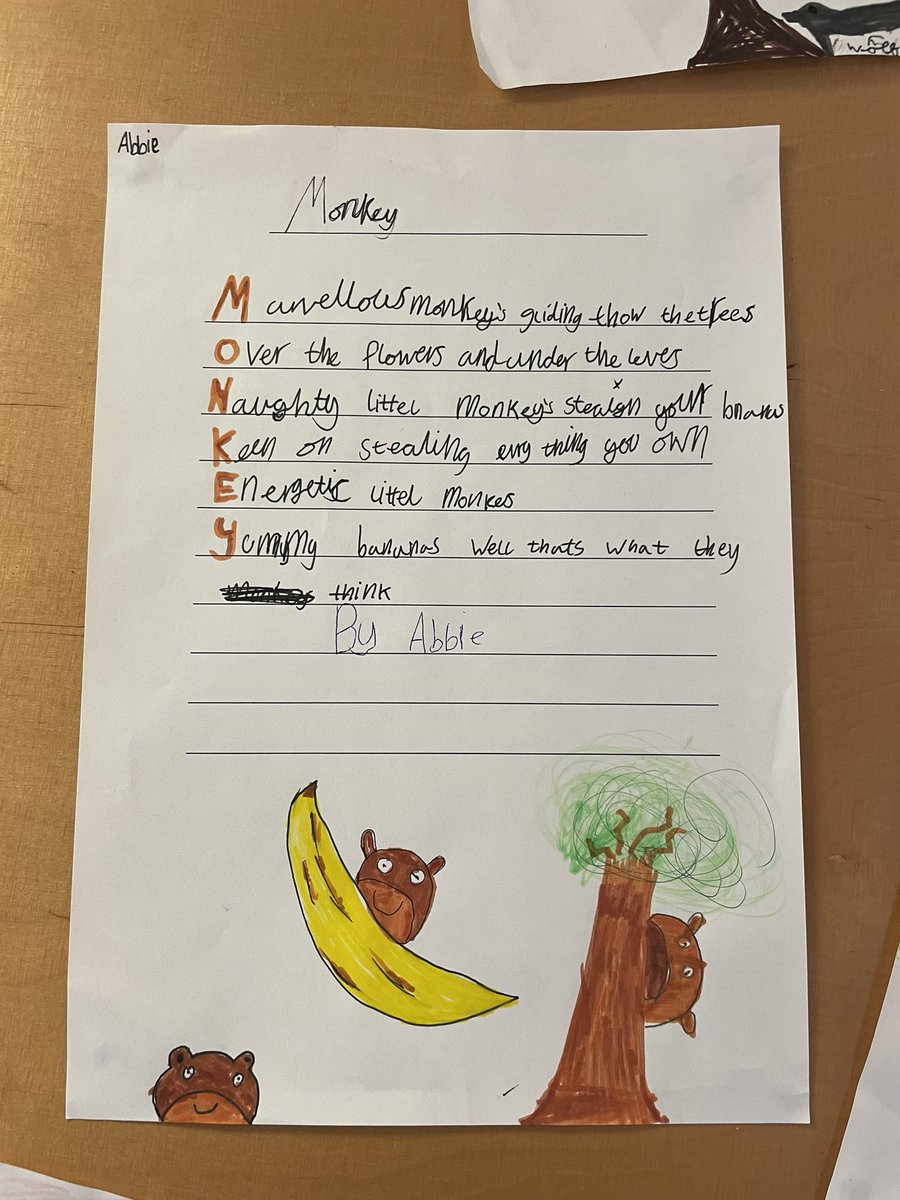 wolf
Abbie
Monkey
Marvellous monkey's gliding thow the trees
Over the flowers and under the leves
Naughty littel monkey's stealon your bnanas
Keen on stealing evry thing you own
Energetic littel monkes
Yummy bananas well thats what they
think
By Abbie